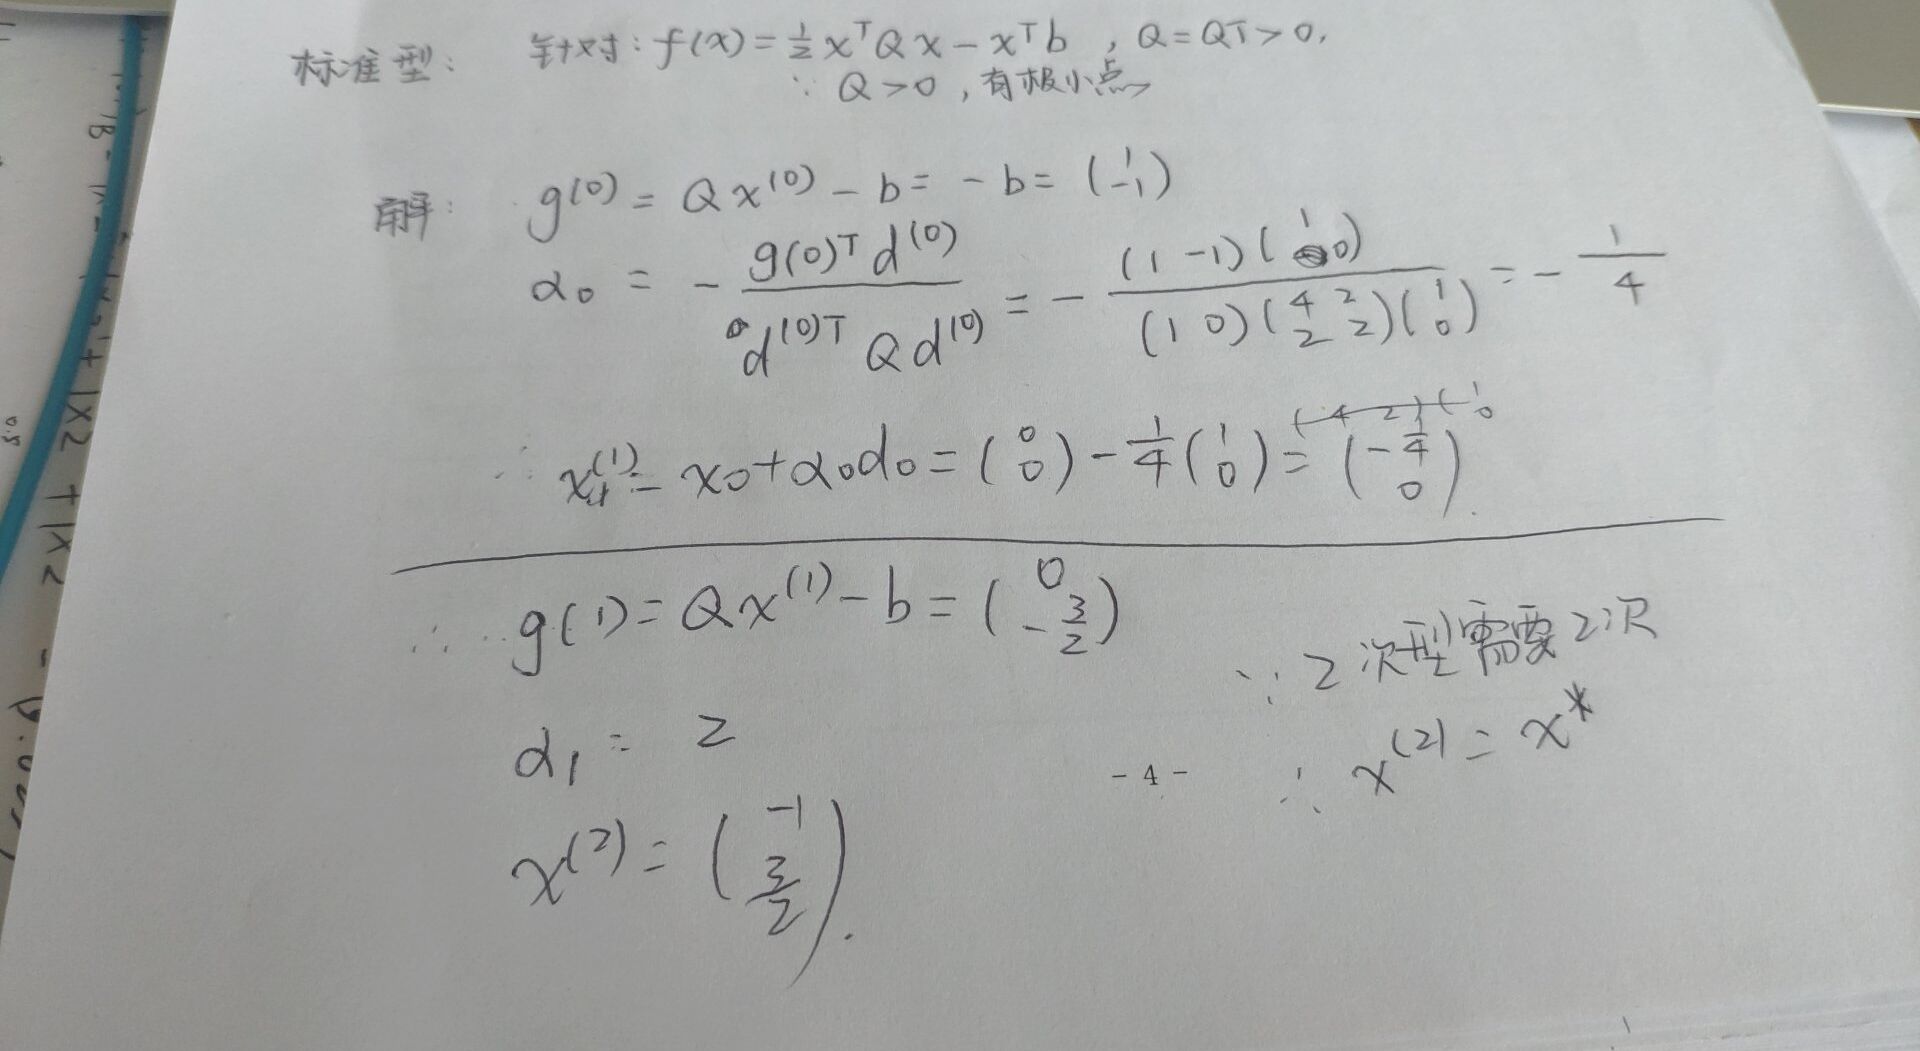 标准型: 针对: f(x)=½xᵀQx-xᵀb, Q=QT>0,
∵ Q>0, 有极小点
解: g(0)=Qx(0)-b=-b=(1 -1)
α0 = - g(0)ᵀd(0) / d(0)ᵀQd(0) = - (1 -1)(1 0) / (1 0)(4 2 2 2)(1 0) = - 1/4
∴ x(1)=x0+α0d0=(0 0)-1/4(1 0)=(-1/4 0)
∴ g(1)=Qx(1)-b=(0 -3/2)
∵ 2次型需要2次
α1 = 2
∴ x(2)=x*
- 4 -
x(2)=(-1 3/2).